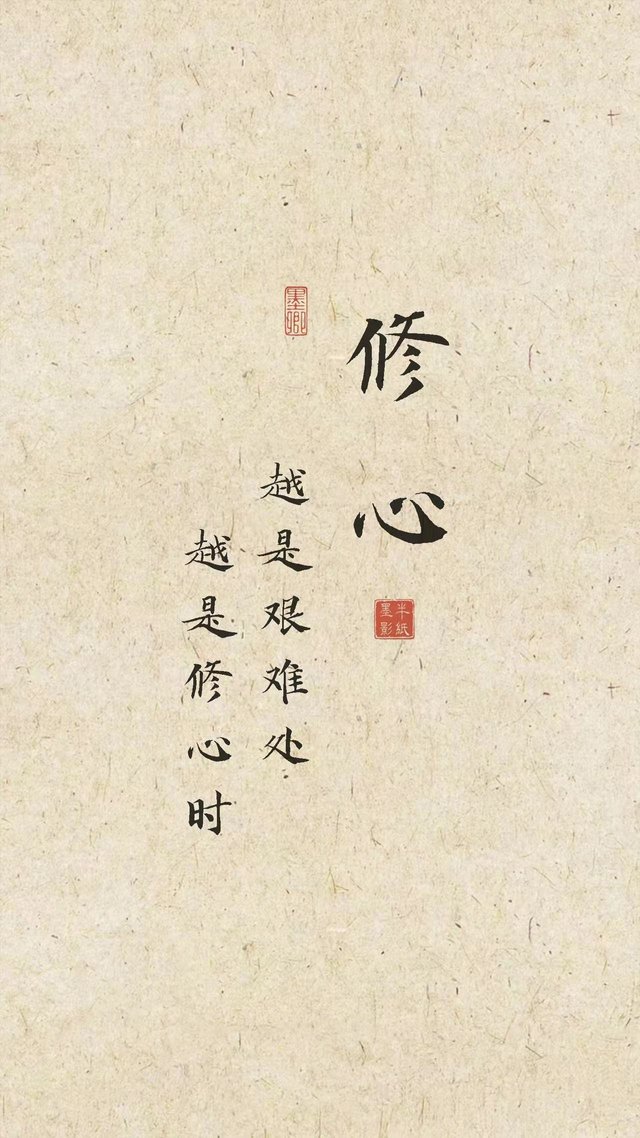 修心
半紙
墨影
墨卿
越是艰难处
越是修心时